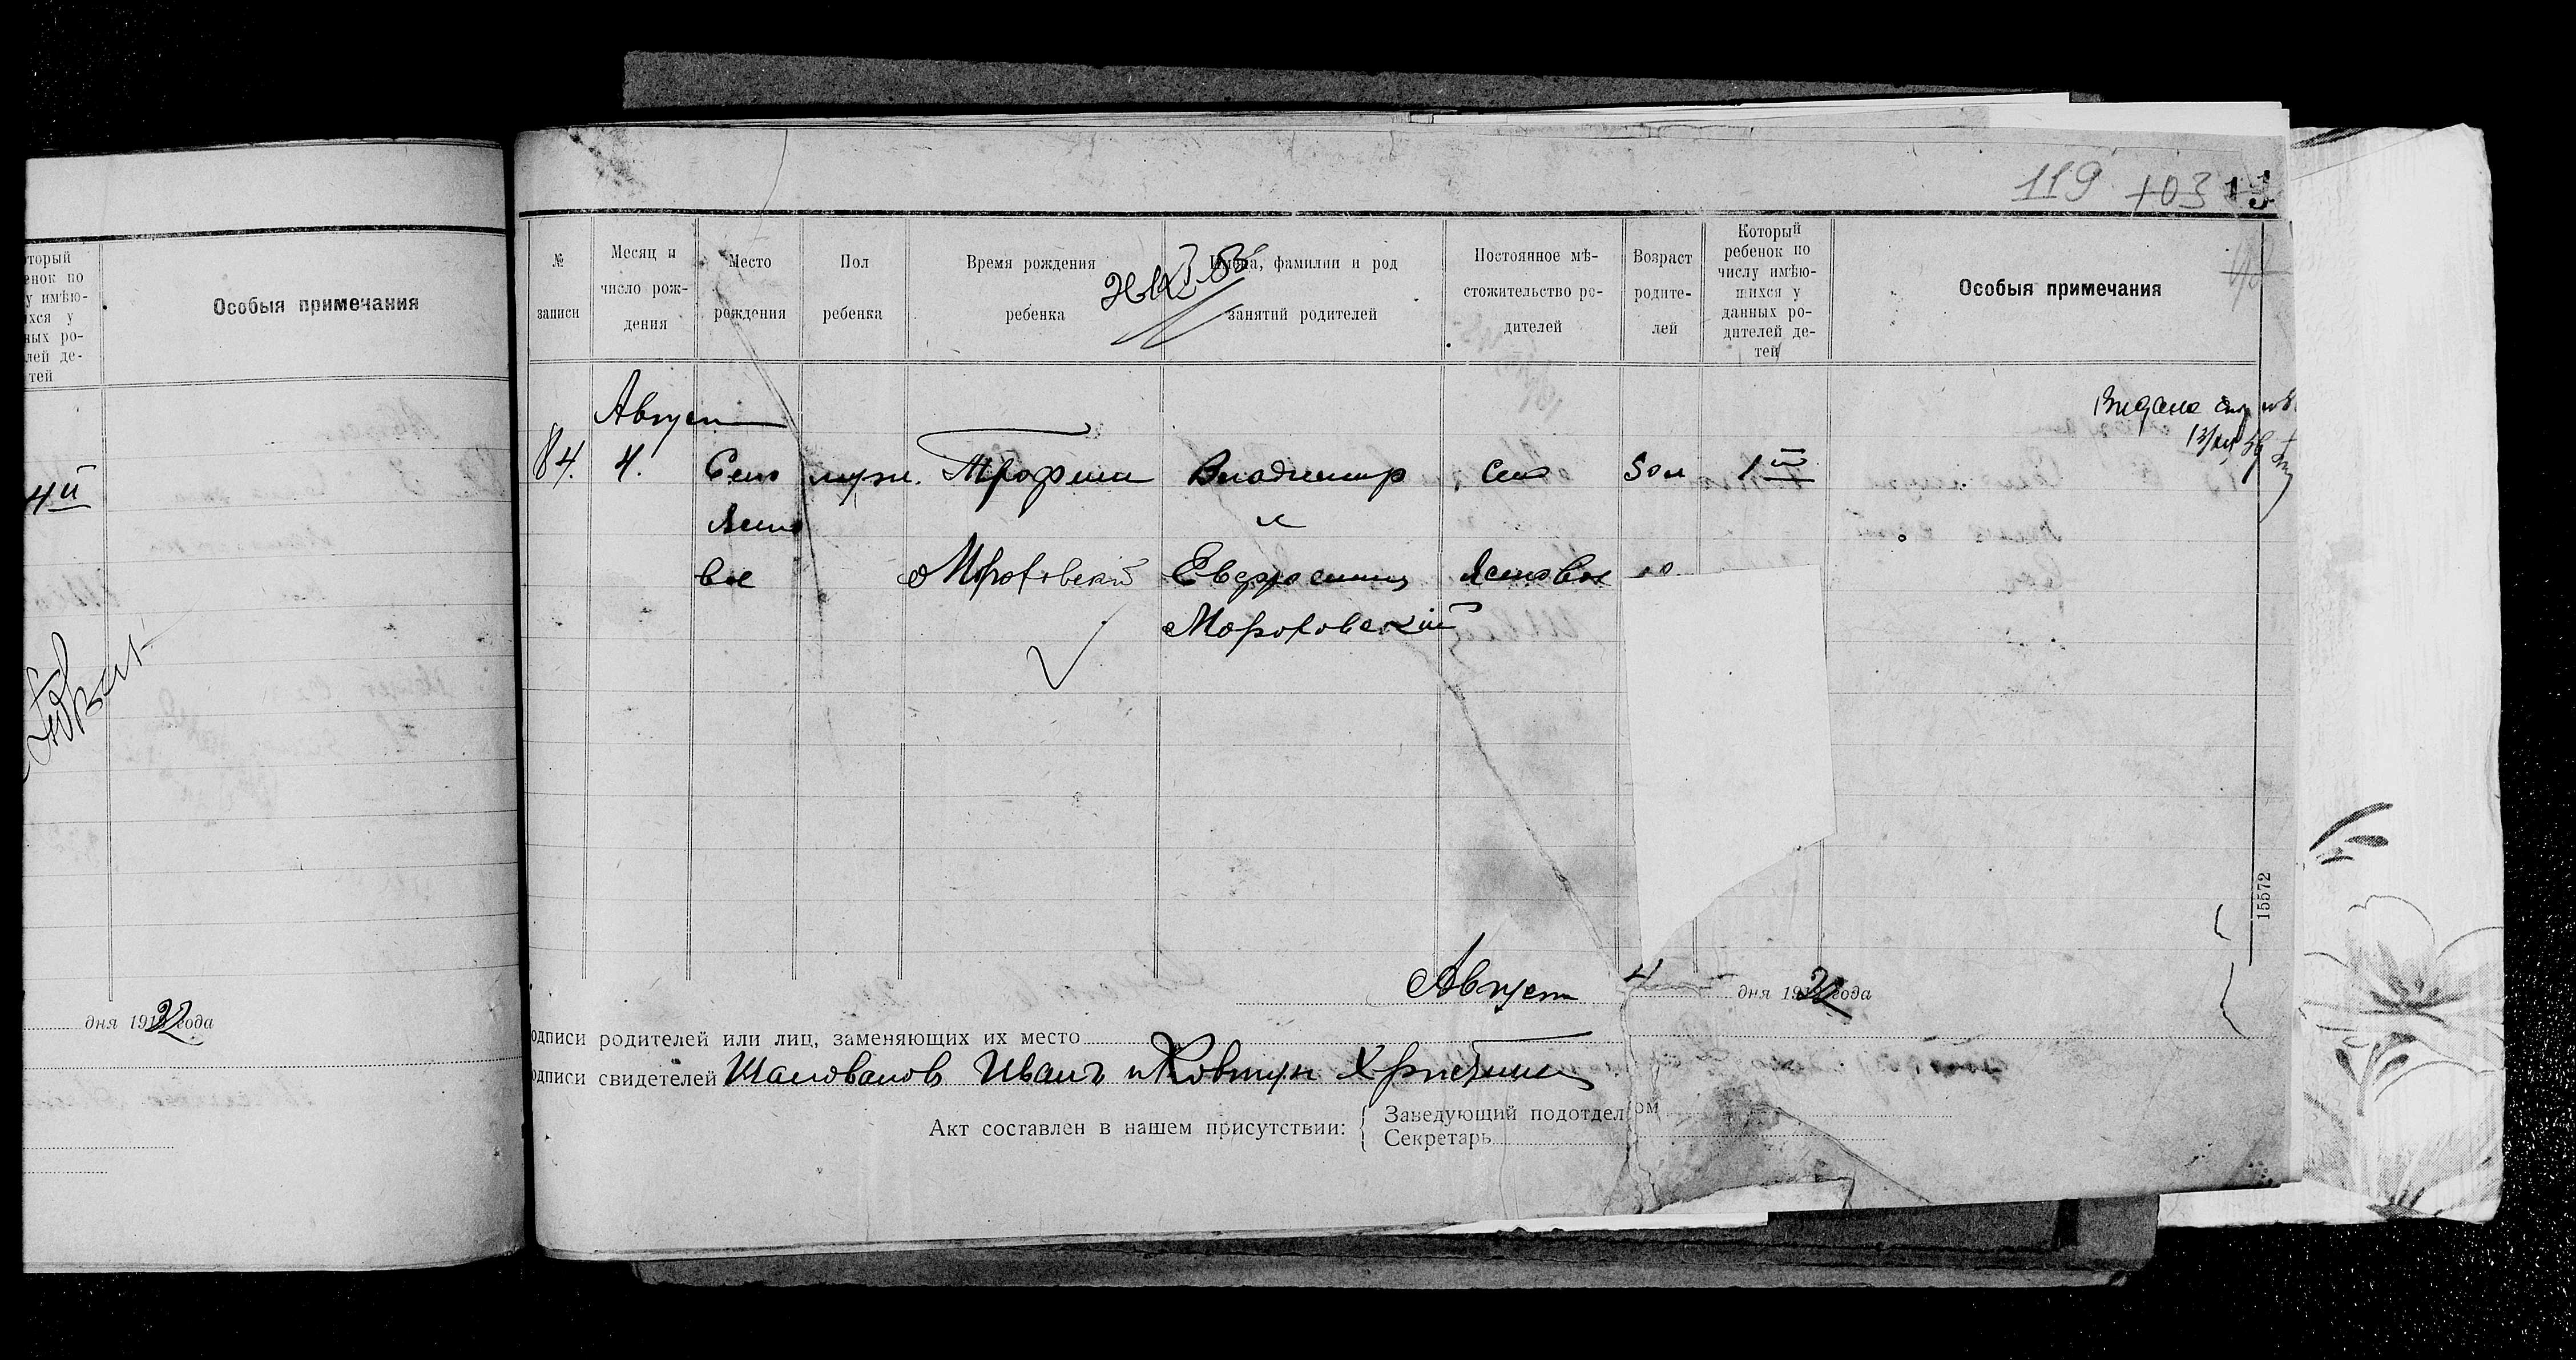 оторый
енок по
у имѣю-
ихся у
ных ро-
лей де-
тей
Особыя примечания
4й
дня 1922 года
119 103
№ записи
Месяц и число рож-дения
Место рождения
Пол ребенка
Время рождения ребенка
Имена, фамилии и род занятий родителей
Постоянное мѣ-стожительство ро-дителей
Возраст родите-лей
Который ребенок по числу имѣю-шихся у данных ро-дителей де-тей
Особыя примечания
Август
Видана
84. 4. Село муж. Трофим Владимир Село 50 л 1й
Ясно и
вое Мороховский Евфросиния Ясновое
Мороховский
15572
Август 4 дня 1922 года
одписи родителей или лиц, заменяющих их место
одписи свидетелей Шаповалов Иванъ и Ковтун Христина
Акт составлен в нашем присутствии: Заведующий подотделом
Секретарь